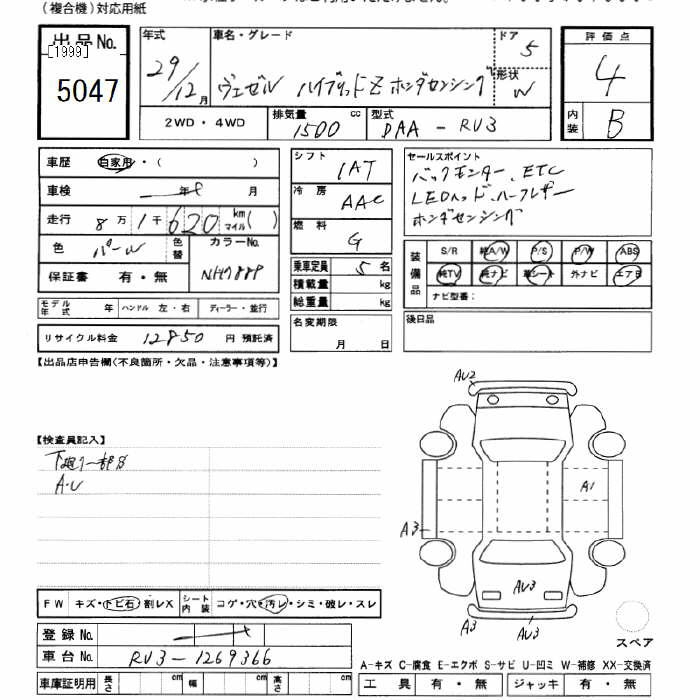 (複合機)対応用紙
出品No. 年式 車名・グレード ドア 5 評価点
[1999]
5047
29/12月 ヴェゼル ハイブリッドZ ホンダセンシング 形状 W 4
2WD・4WD 排気量 1500 cc 型式 DAA-RU3 内装 B
車歴 自家用・( )
シフト 1AT
セールスポイント
バックモニター、ETC
LEDヘッド、ハーフレザー
ホンダセンシング
車検 年 月
冷房 AAC
走行 8万1千620 km マイル( )
燃料 G
色 パール 色替 カラーNo. NH788P
装備品 S/R 純A/W P/S P/W ABS
純TV 純ナビ 革シート 外ナビ エアB
ナビ型番:
保証書 有・無
乗車定員 5名
積載量 kg
総重量 kg
モデル年式 年 ハンドル 左・右 ディーラー・並行
名変期限 月 日
後日品
リサイクル料金 12850 円 預託済
【出品店申告欄(不良箇所・欠品・注意事項等)】
【検査員記入】
下廻り一部サ
A・U
AU2
A1
A3
AU3
A3
AU3
スペア
FW キズ・トビ石・割レX シート内装 コゲ・穴・汚レ・シミ・破レ・スレ
登録No.
車台No. RU3-1269366
A-キズ C-腐食 E-エクボ S-サビ U-凹ミ W-補修 XX-交換済
車庫証明用 長さ cm 幅 cm 高さ cm
工具 有・無 ジャッキ 有・無